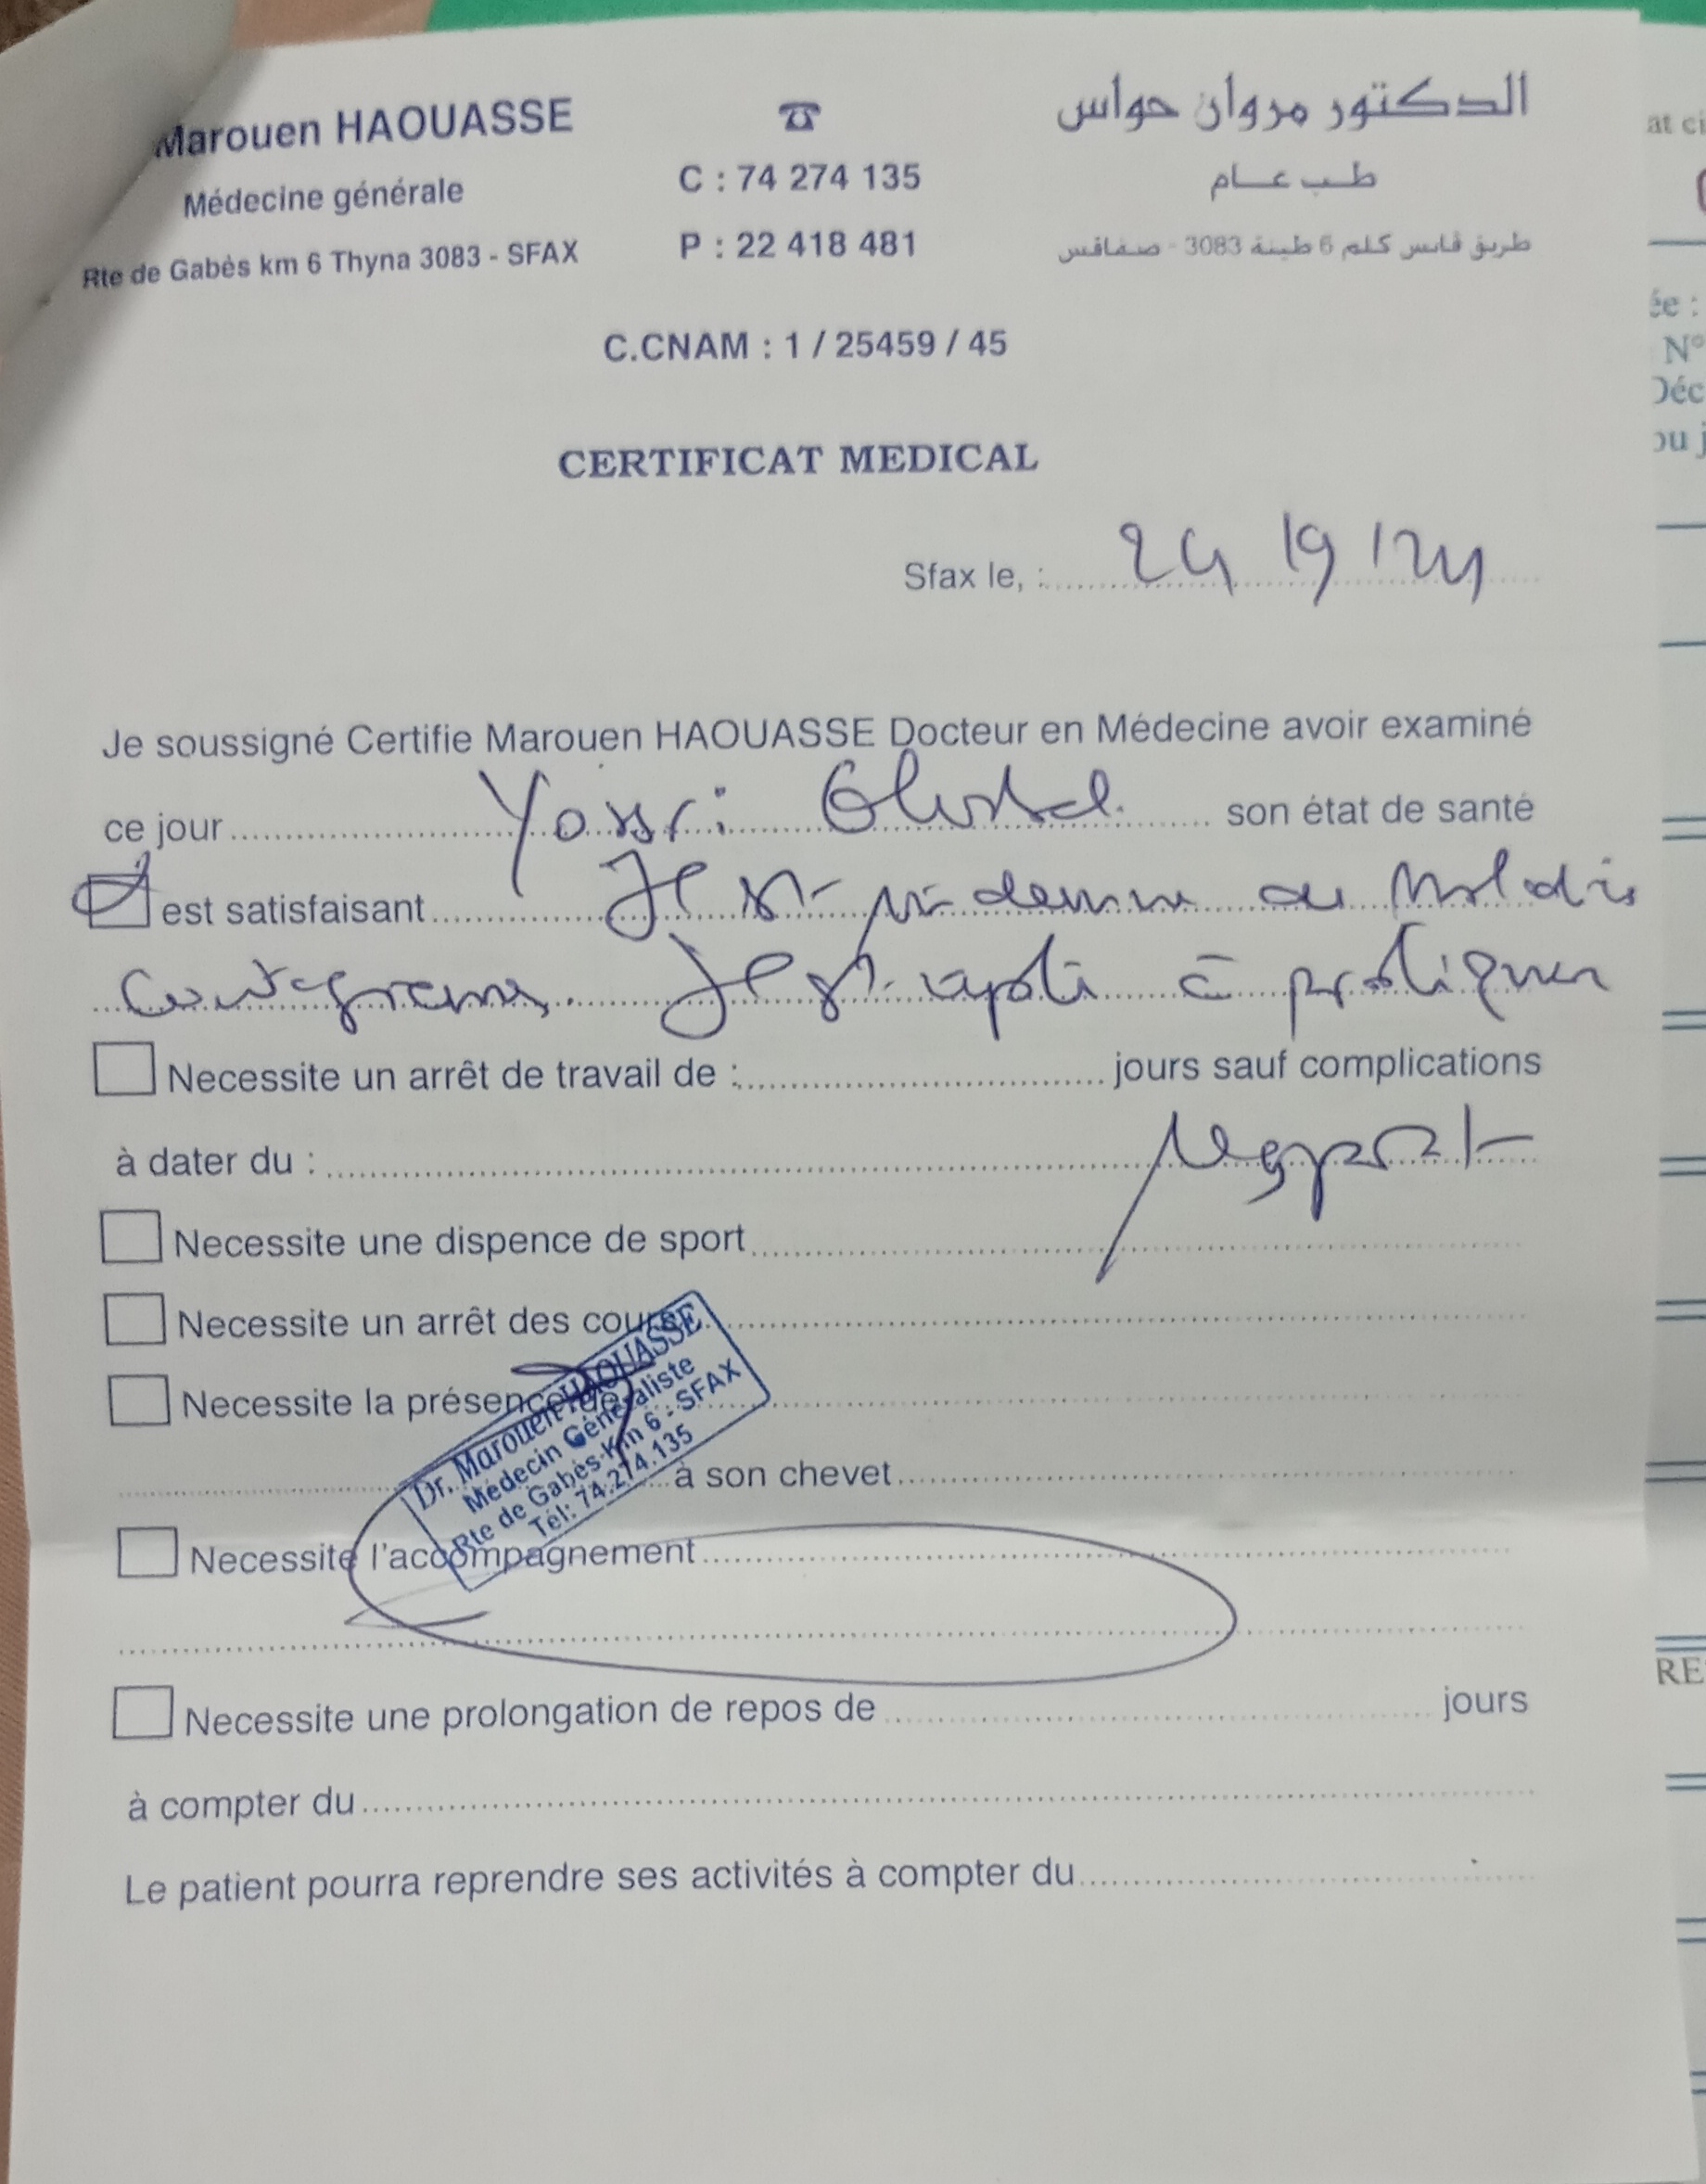 Marouen HAOUASSE
Médecine générale
Rte de Gabès km 6 Thyna 3083 - SFAX
☎
C : 74 274 135
P : 22 418 481
الدكتور مروان حواس
طب عام
طريق قابس كلم 6 طينة 3083 - صفاقس
C.CNAM : 1 / 25459 / 45
CERTIFICAT MEDICAL
Sfax le, : 24 / 9 / 24
Je soussigné Certifie Marouen HAOUASSE Docteur en Médecine avoir examiné
ce jour Yossri son état de santé
est satisfaisant Il est indemne de Maladies
Contagieuses. Il est apte à pratiquer
Necessite un arrêt de travail de : jours sauf complications
à dater du :
Necessite une dispence de sport
Necessite un arrêt des cours
Necessite la présence de
à son chevet
Necessite l'accompagnement
Dr. Marouen HAOUASSE
Médecin Généraliste
Rte de Gabès Km 6 - SFAX
Tél: 74.274.135
Necessite une prolongation de repos de jours
à compter du
Le patient pourra reprendre ses activités à compter du
at ci
ée :
N°
Déc
ou j
RE